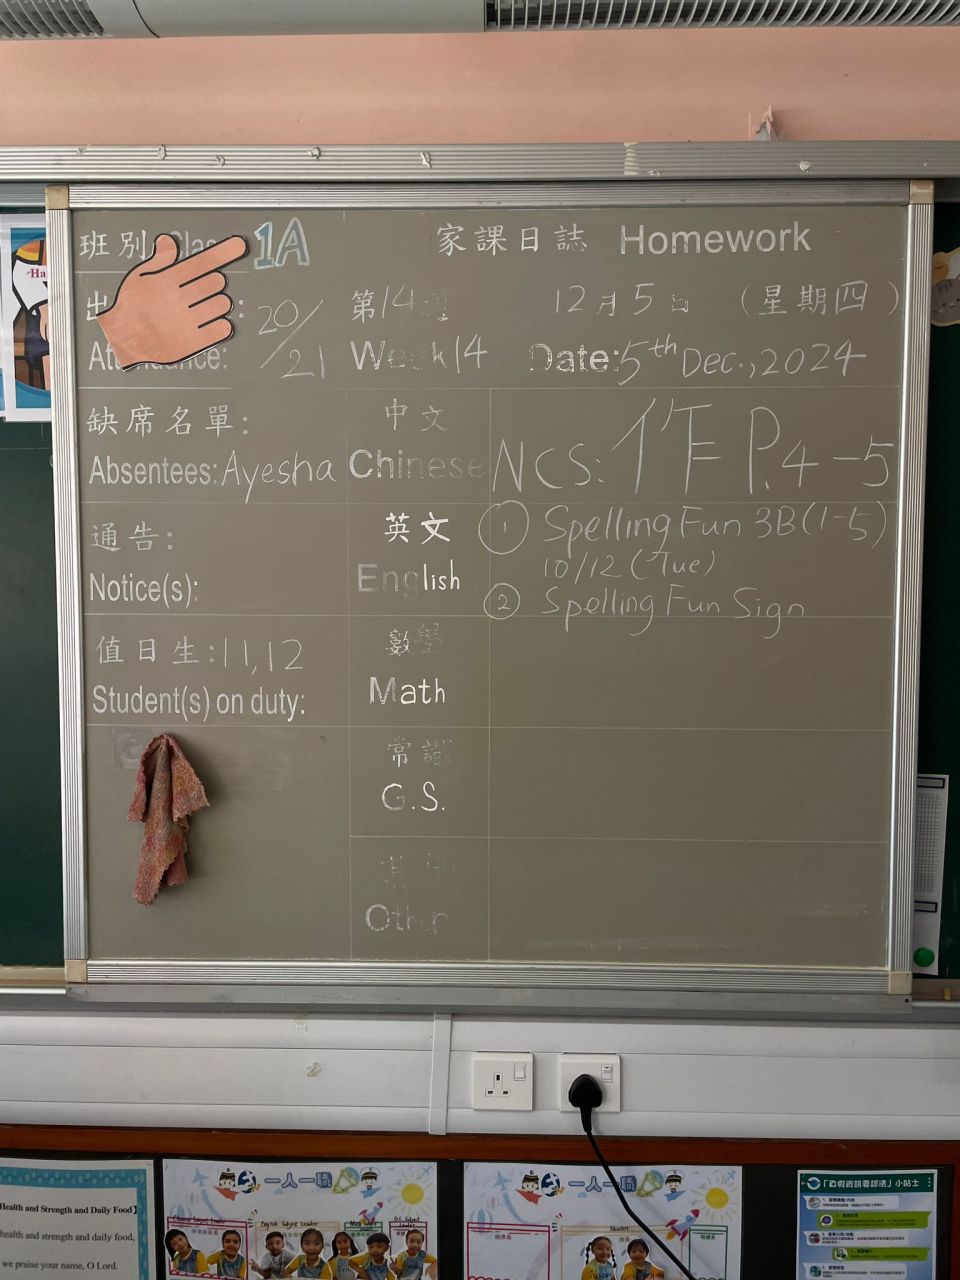 班別 Clas 1A
家課日誌 Homework
出 : 20/21
第14週
12月5日 (星期四)
Attendance:
Week 14
Date: 5th Dec., 2024
缺席名單:
Absentees: Ayesha
中文
Chinese
NCS: 作 P.4-5
通告:
Notice(s):
英文
English
① Spelling Fun 3B (1-5)
10/12 (Tue)
② Spelling Fun Sign
值日生: 11,12
Student(s) on duty:
數學
Math
常識
G.S.
其他
Other
Ha
Health and Strength and Daily Food】
health and strength and daily food,
we praise your name, O Lord.
一人一職
English Subject Leader
一人一職
小貼士